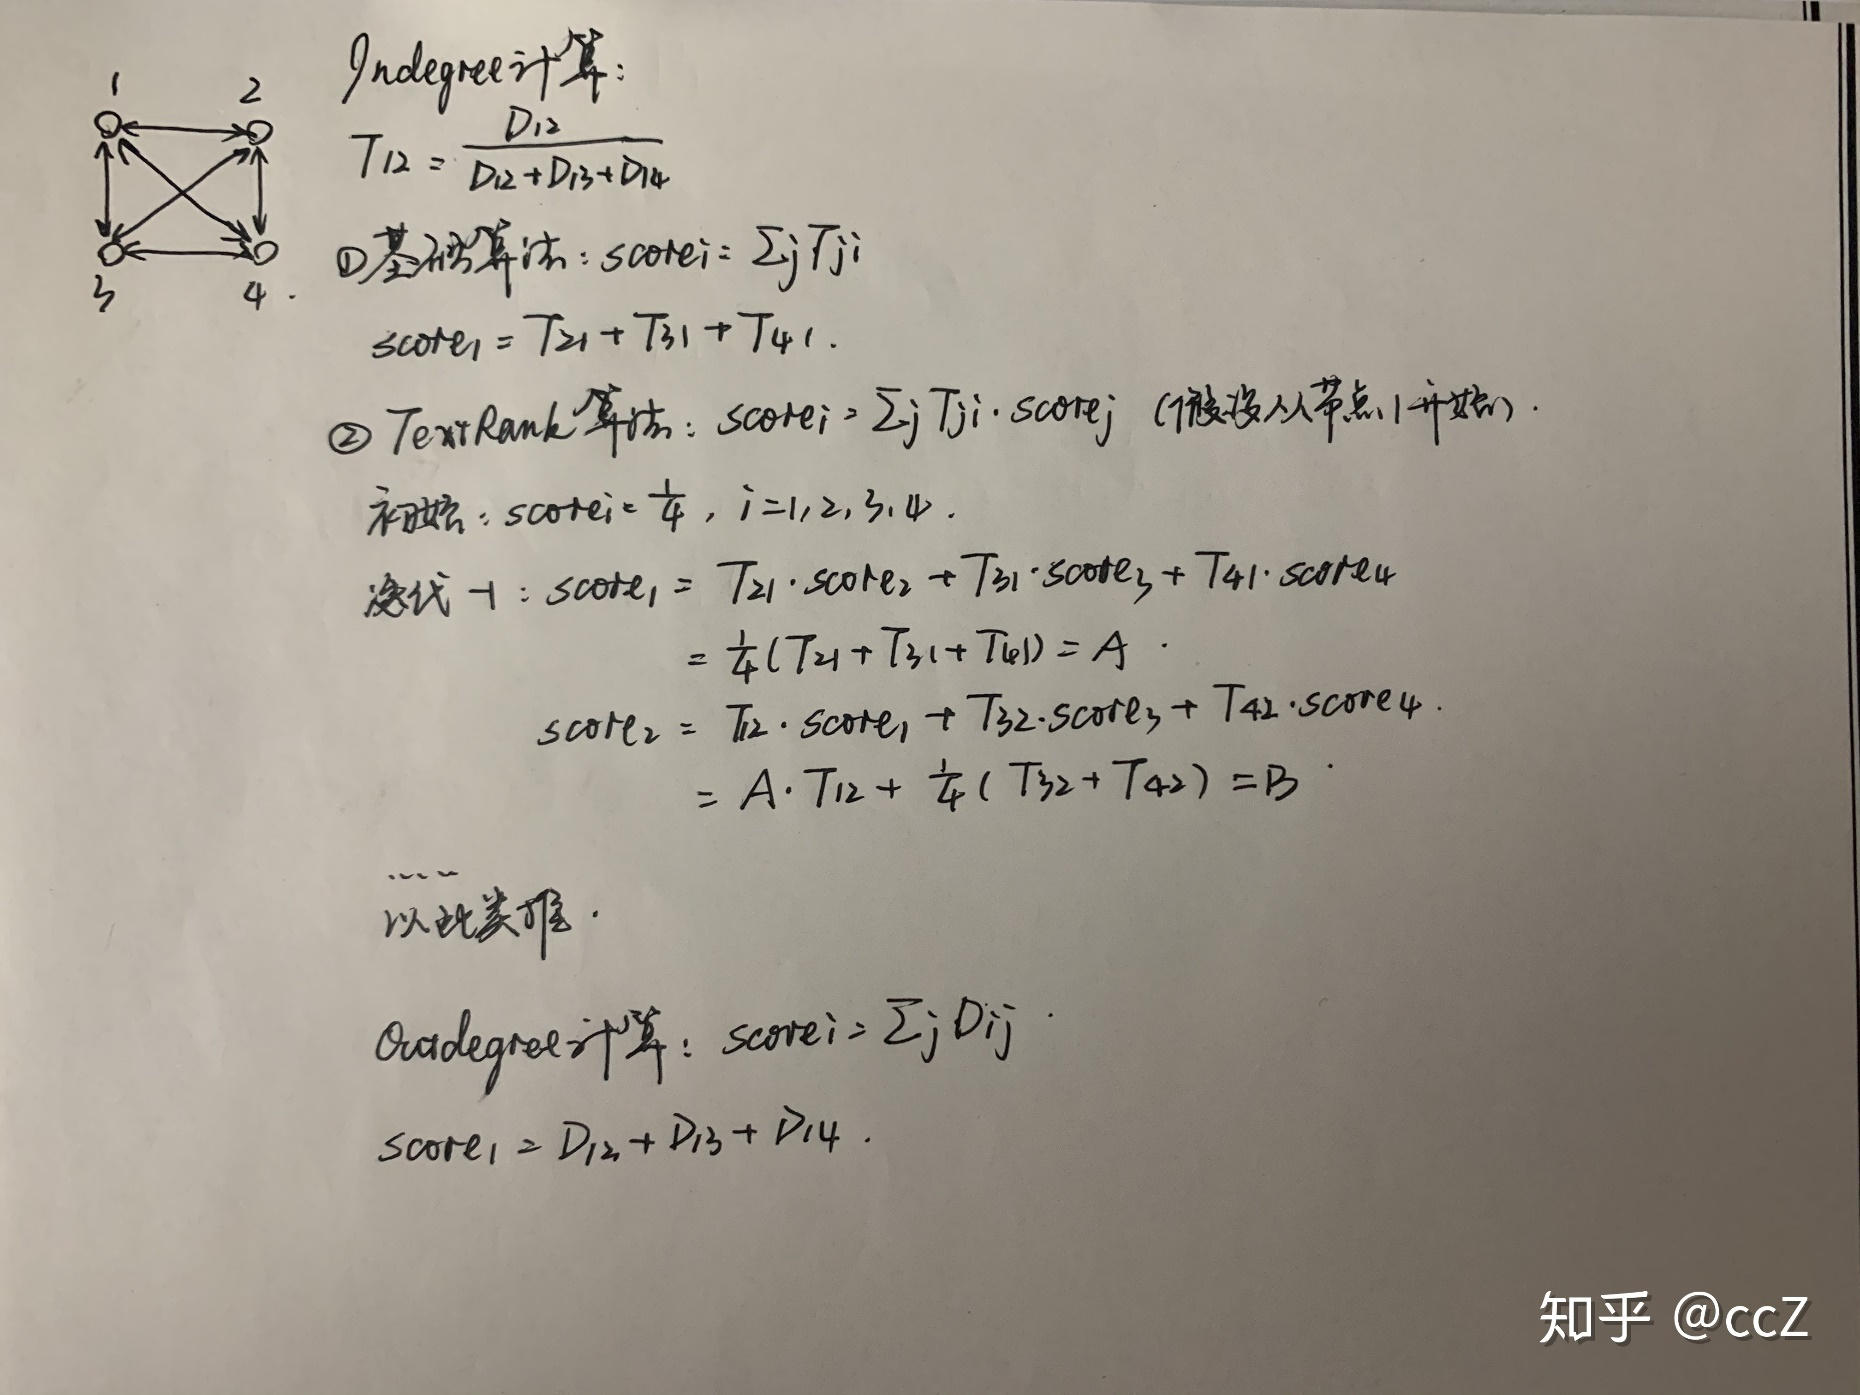 1 2
3 4 .
Indegree计算:
T12 = D12 / D12+D13+D14
①基础算法: scorei = Σj Tji
score1 = T21 + T31 + T41.
② TextRank算法: scorei = Σj Tji · scorej (假设从节点1开始).
初始: scorei = 1/4 , i=1,2,3,4.
迭代-1: score1 = T21 · score2 + T31 · score3 + T41 · score4
= 1/4 (T21 + T31 + T41) = A .
score2 = T12 · score1 + T32 · score3 + T42 · score4.
= A · T12 + 1/4 ( T32 + T42 ) = B .
....
以此类推.
Outdegree计算: scorei = Σj Dij .
score1 = D12 + D13 + D14 .
知乎 @ccZ